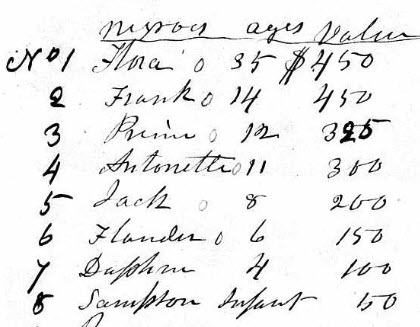 negroes ages Value
No 1 Flora 35 $450
2 Frank 14 450
3 Prime 12 325
4 Antonette 11 300
5 Jack 8 200
6 Flander 6 150
7 Daphne 4 100
8 Sampson Infant 50